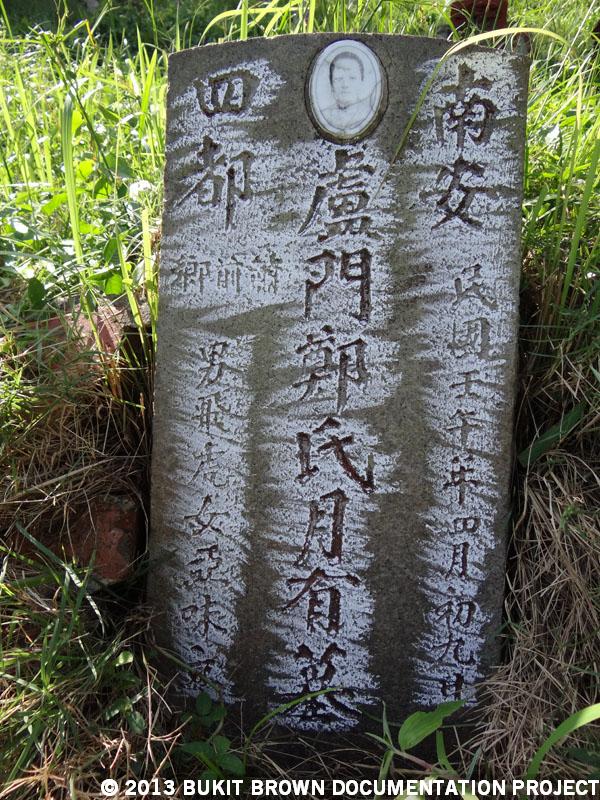 南安
民國壬午年四月初九日
盧門鄭氏月有墓
四都
前鄉
男飛虎女亞味立
© 2013 BUKIT BROWN DOCUMENTATION PROJECT